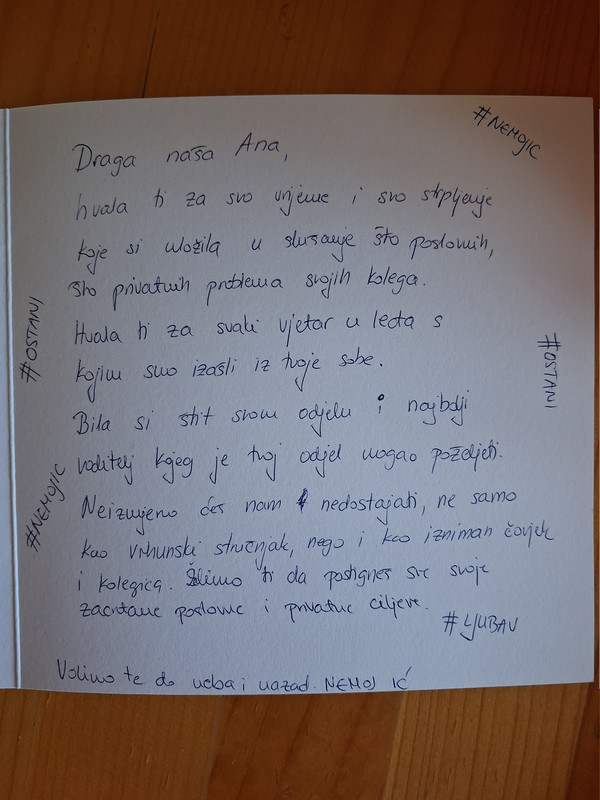 #NEMOJIC
Draga naša Ana,
hvala ti za svo vrijeme i svo strpljenje
koje si uložila u slušanje što poslovnih,
što privatnih problema svojih kolega.
Hvala ti za svaki vjetar u leđa s
kojim smo izašli iz tvoje sobe.
Bila si štit svom odjelu i najbolji
voditelj kojeg je tvoj odjel mogao poželjeti.
Neizmjerno ćeš nam nedostajati, ne samo
kao vrhunski stručnjak, nego i kao izniman čovjek
i kolegica. Želimo ti da postigneš sve svoje
zacrtane poslovne i privatne ciljeve.
#LJUBAV
Volimo te do neba i nazad. NEMOJ IĆ
#OSTANI
#NEMOJIC
#OSTANI